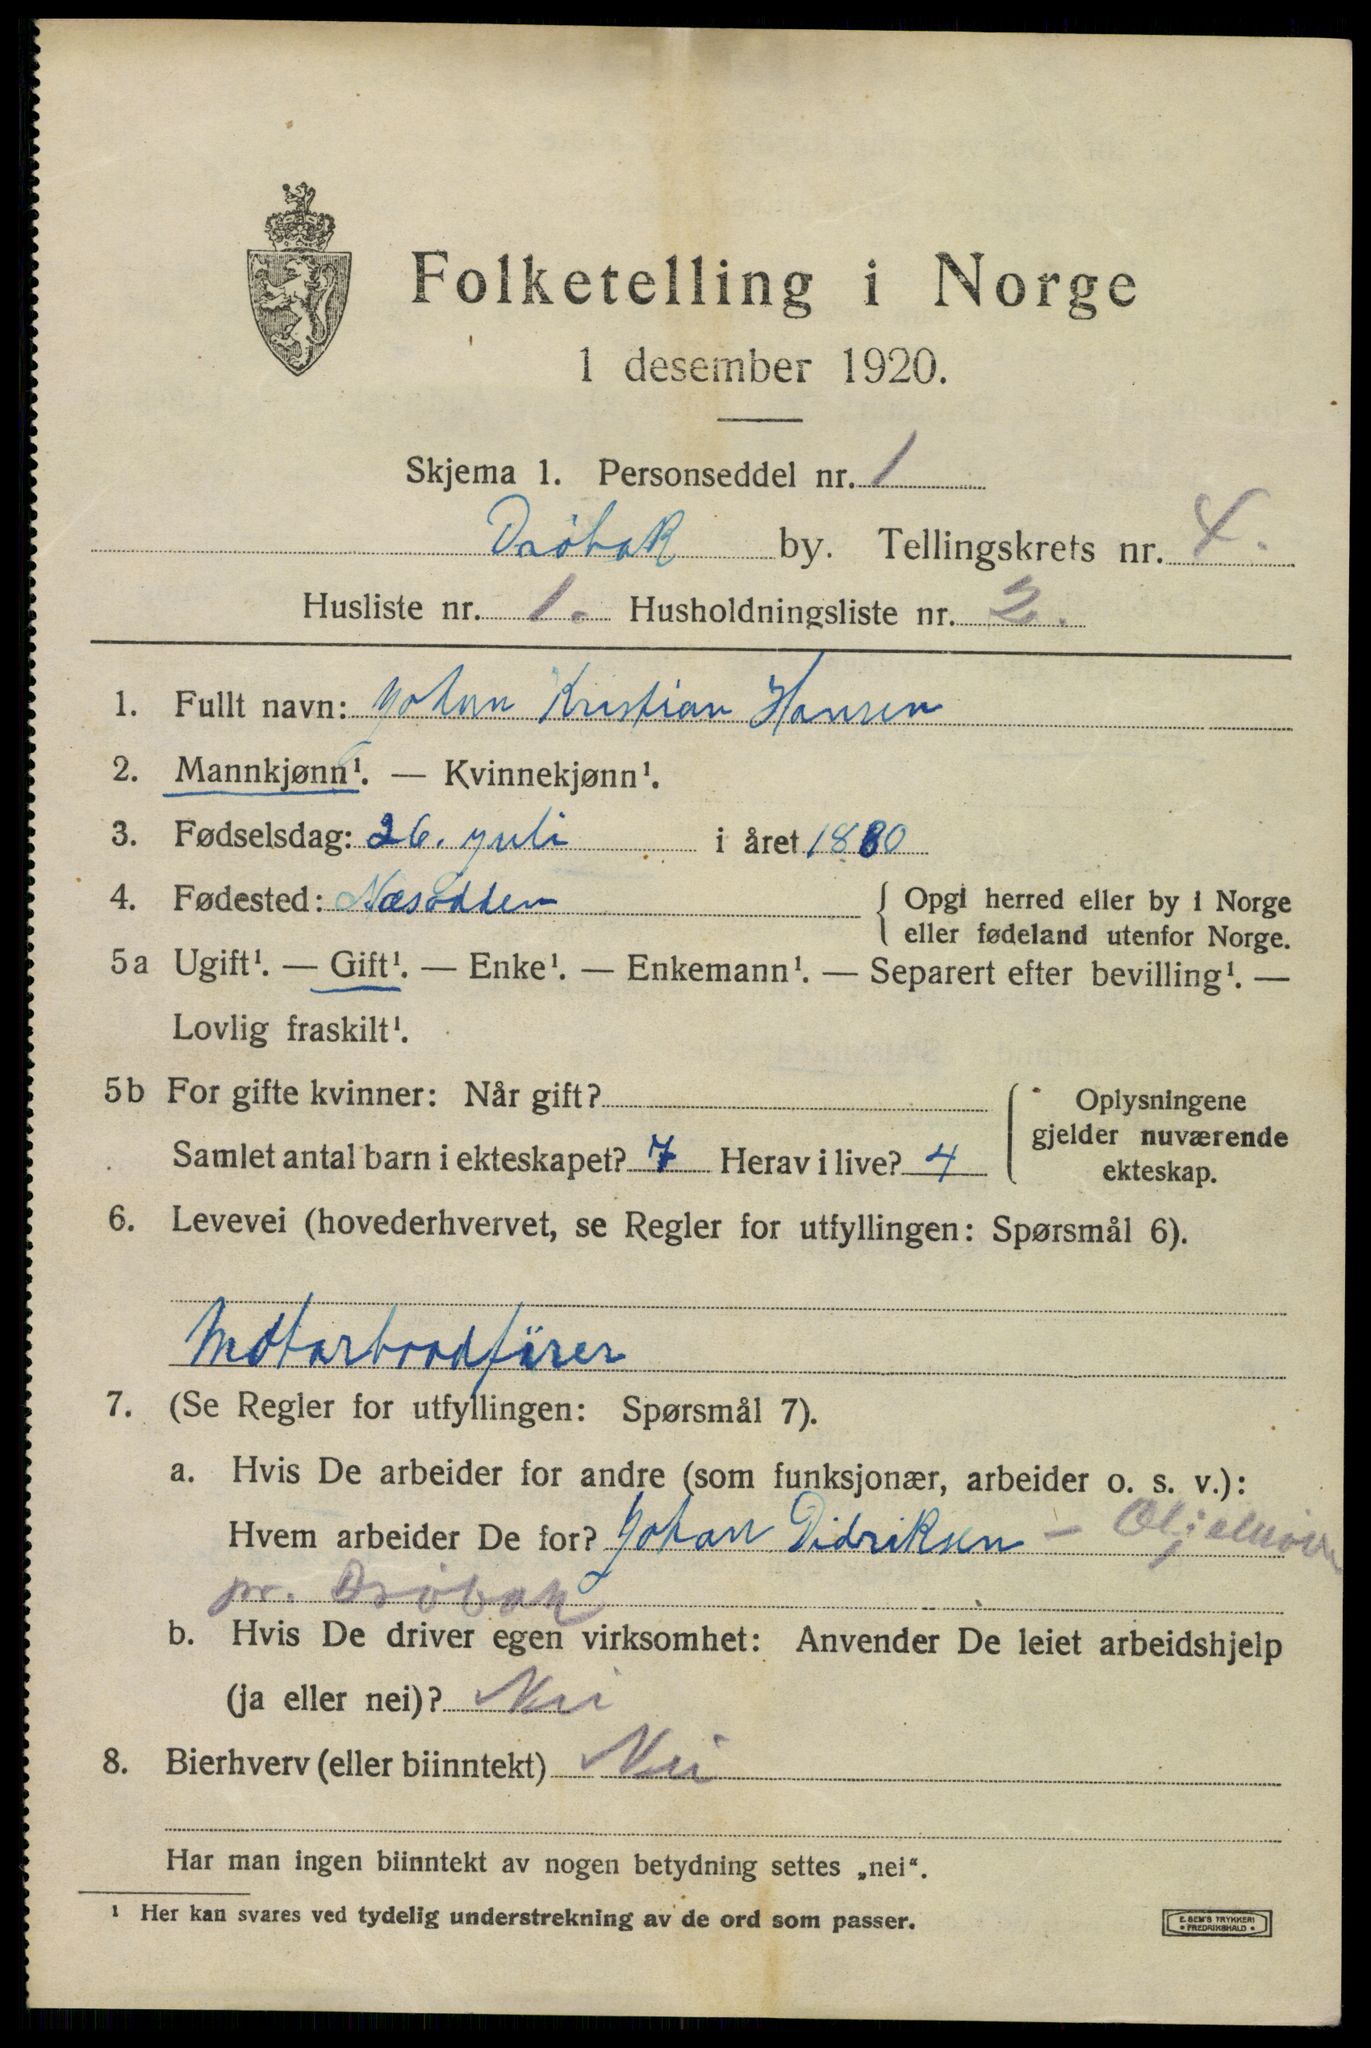 Folketelling i Norge
1 desember 1920.
Skjema 1. Personseddel nr. 1
Drøbak by. Tellingskrets nr. 4.
Husliste nr. 1. Husholdningsliste nr. 2.
1. Fullt navn: Johan Kristian Hansen
2. Mannkjønn¹. — Kvinnekjønn¹.
3. Fødselsdag: 26. juli i året 1880
4. Fødested: Næsodden { Opgi herred eller by i Norge
eller fødeland utenfor Norge.
5a Ugift¹. — Gift¹. — Enke¹. — Enkemann¹. — Separert efter bevilling¹. —
Lovlig fraskilt¹.
5b For gifte kvinner: Når gift? Oplysningene
gjelder nuværende
Samlet antal barn i ekteskapet? 7 Herav i live? 4
ekteskap.
6. Levevei (hovederhvervet, se Regler for utfyllingen: Spørsmål 6).
Motorbaadfører
7. (Se Regler for utfyllingen: Spørsmål 7).
a. Hvis De arbeider for andre (som funksjonær, arbeider o. s. v.):
Hvem arbeider De for? Johan Didriksen —
pr. Drøbak
b. Hvis De driver egen virksomhet: Anvender De leiet arbeidshjelp
(ja eller nei)? Nei
8. Bierhverv (eller biinntekt) Nei
Har man ingen biinntekt av nogen betydning settes „nei“.
¹ Her kan svares ved tydelig understrekning av de ord som passer.
E. SEM'S TRYKKERI
• FREDRIKSHALD •